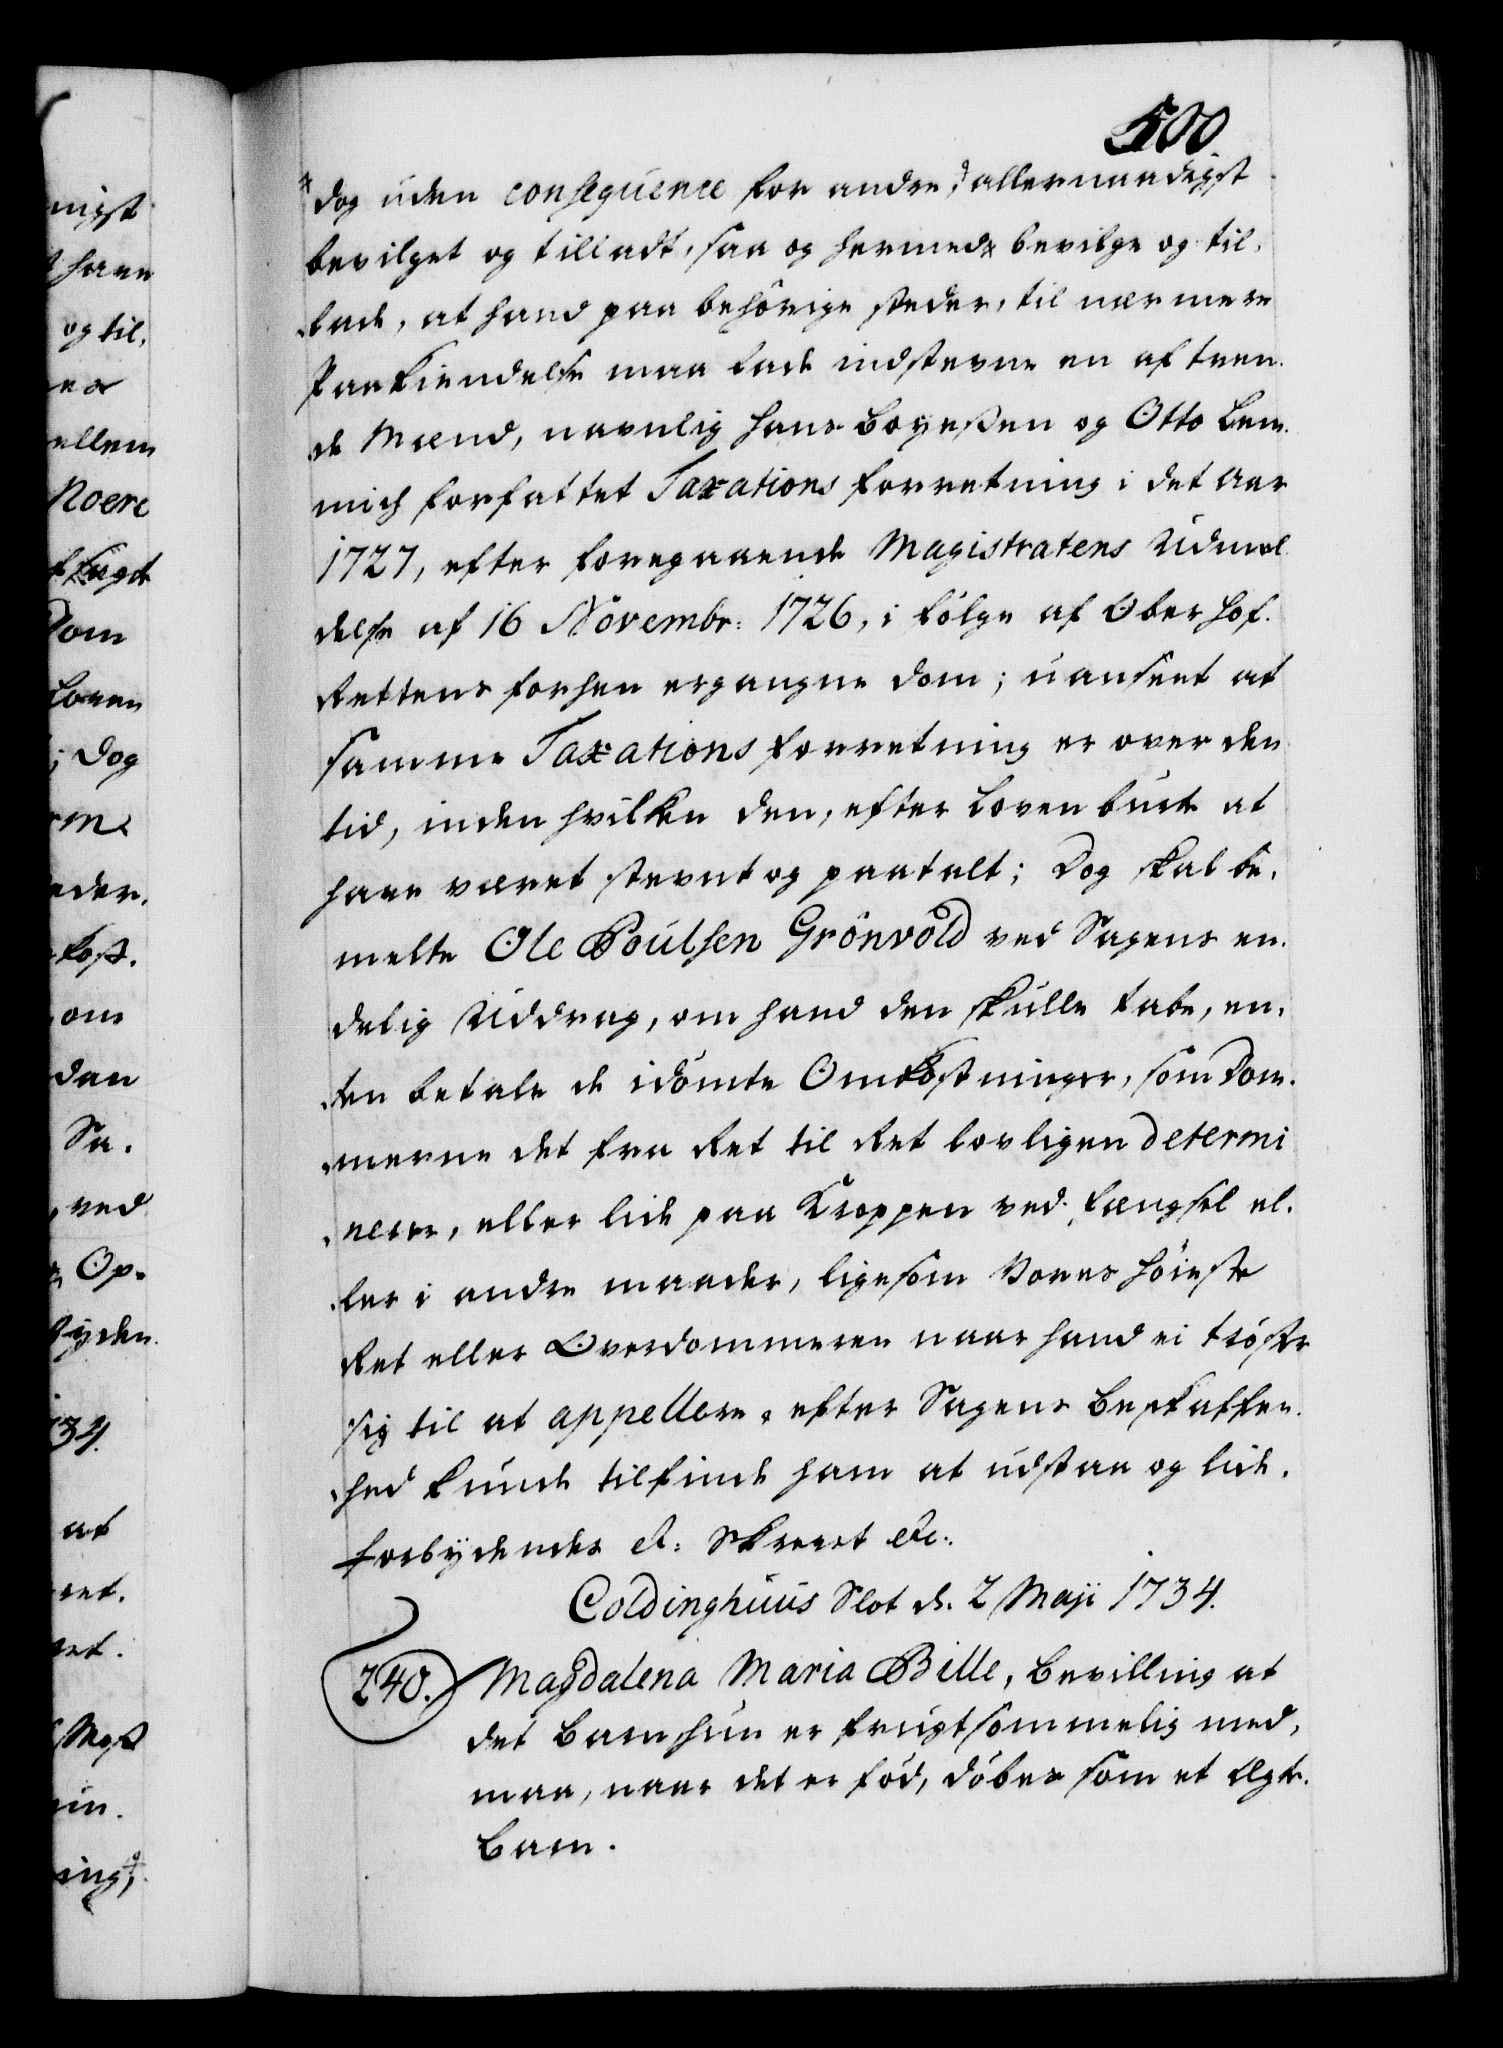 500
dog uden consequence for andre, allernaadigst
bevilget og tilladt, saa og hermed bevilge og til-
lade, at hand paa behörige steder, til nærmere
Paakiendelse maa lade indstevne en af tven-
de Mænd, navnlig Hans Boyessen og Otto Lem-
mich forfattet Taxations forretning i det Aar
1727, efter foregaaende Magistratens Udmel-
delse af 16 Novembr: 1726, i fölge af Oberhof-
Rettens forhen ergangne Dom; uanseet at
samme Taxations forretning er over den
tid, inden hvilken den, efter Loven burde at
have været stevnt og paatalt; Dog skal be-
melte Ole Poulsen Grönvold ved Sagens en-
delig Uddrag, om hand den skulle tabe, en-
ten betale de idömte Omkostninger, som Dom-
merne det fra Ret til Ret lovligen determi
nerer, eller lide paa Kroppen ved fængsel el-
ler i andre maader, ligesom Vores Höieste
Ret eller Overdommeren naar hand ei tröster
sig til at appellere, efter Sagens Beskaffen-
hed kunde tilfinde ham at udstaa og lide.
Forbydendes et: Skrevet etc:
Coldinghuus Slot d. 2 Maji 1734.
240. Magdalena Maria Bille, Bevilling at
det Barn hun er frugtsommelig med,
maa, naar det er föd, döbes som et Ægte-
Barn.